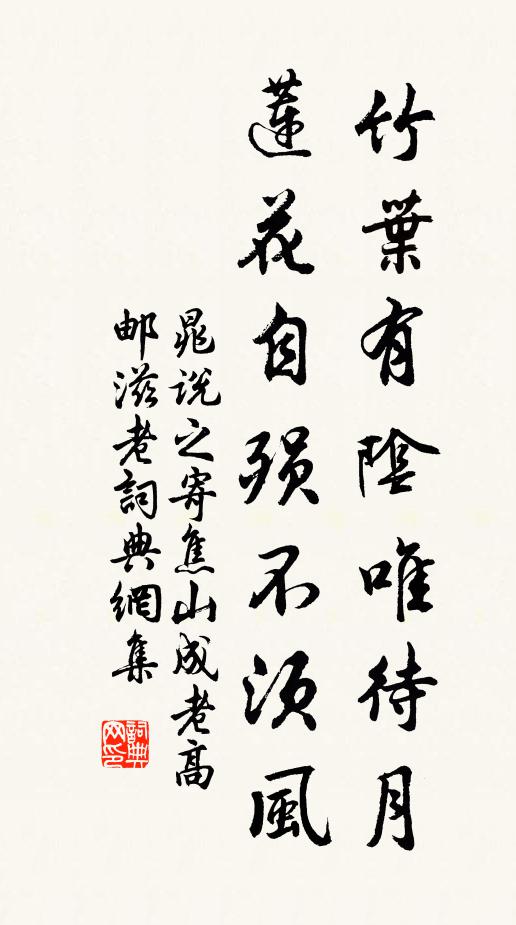 竹葉有陰唯待月
蓮花自殞不須風
晁說之寄焦山成老高
邮滋老詞典網集
詞典網印